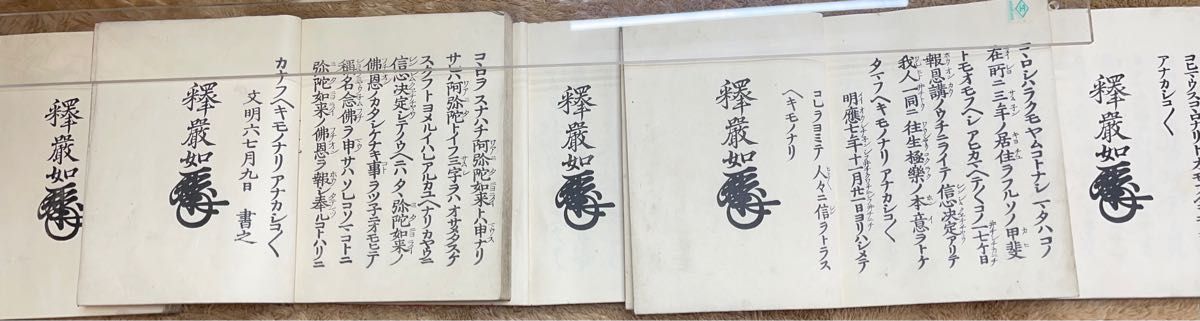 アナカシコ〱
コヽロシツラクモヤムコトナシマタハコノ
在所三年ノ居住ヲフルソノ甲斐
トモオモフヘシアヒカマヘテ〱コノ一七ケ日
報恩講ノウチニヲイテ信心決定アリテ
我人一同ニ往生極樂ノ本意ヲトケ
タマフヘキモノナリアナカシコ〱
明應七年十一月廿一日ヨリハシメテ
コレヲヨミテ人々ニ信ヲトラス
ヘキモノナリ
釋嚴如
釋嚴如
コヽロヲスナハチ阿弥陀如来トハ申ナリ
サレハ阿弥陀トイフ三字ヲハオサメタスケ
スクフトヨメルイハレアルカユヘナリカヤウニ
信心決定シテノウヘニハタヽ弥陀如来ノ
佛恩ノカタシケナキ事ヲツ子ニオモヒテ
稱名念佛ヲ申サハソレコソマコトニ
弥陀如来ノ佛恩ヲ報シ奉ルコトハリニ
カナフヘキモノナリアナカシコ〱
文明六七月九日 書之
釋嚴如
釋嚴如